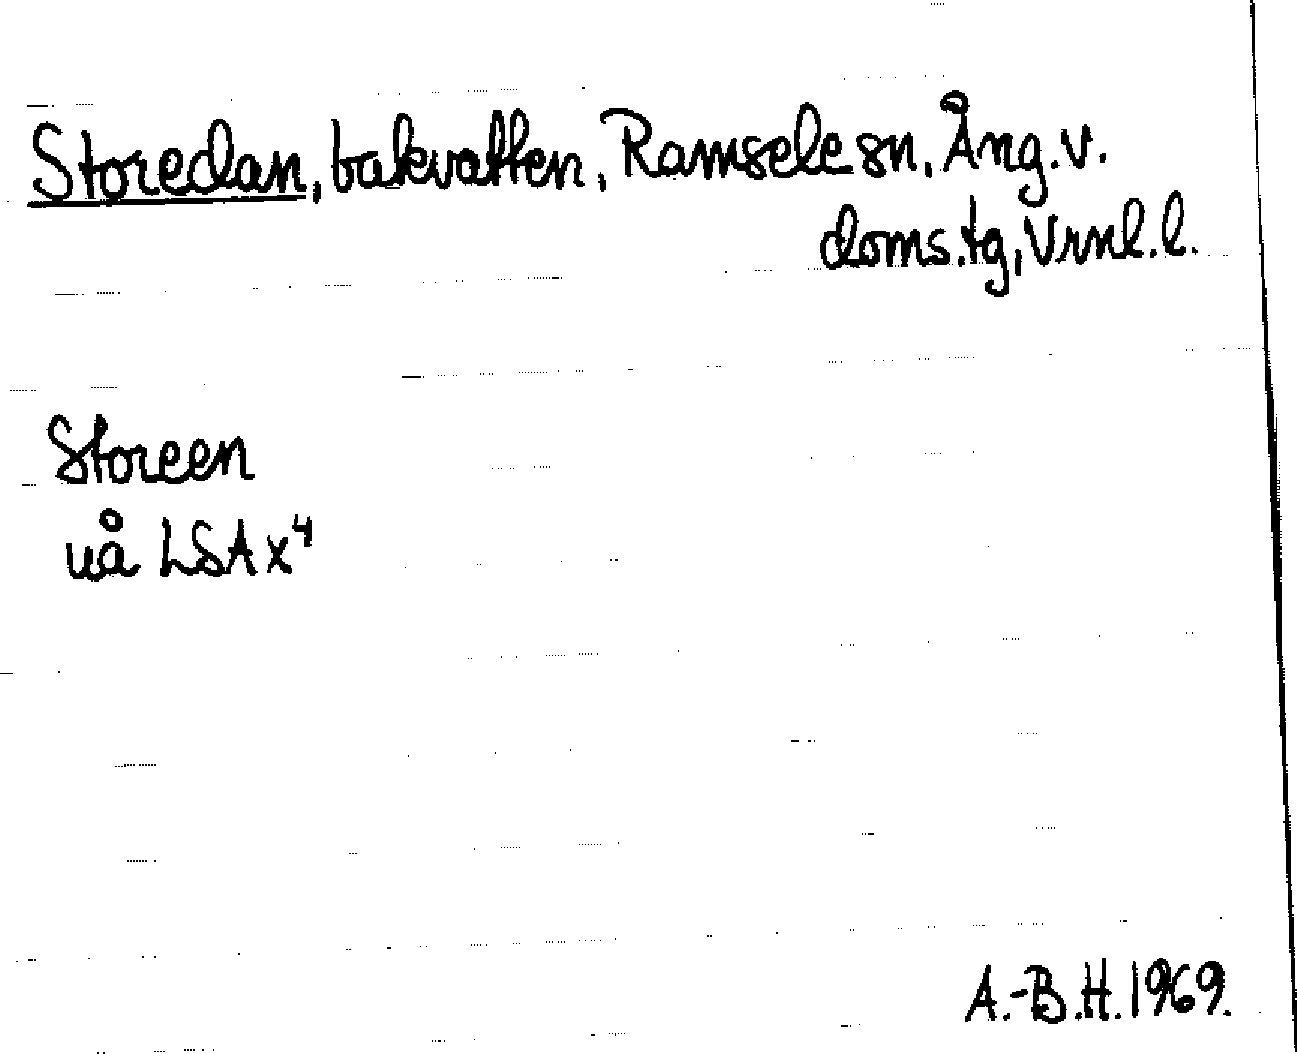 Storedan, bakvatten, Ramsele sn, Ång. v.
doms. tg, Vrnl. l.
Storeen
uå LSA x⁴
A.-B.H. 1969.